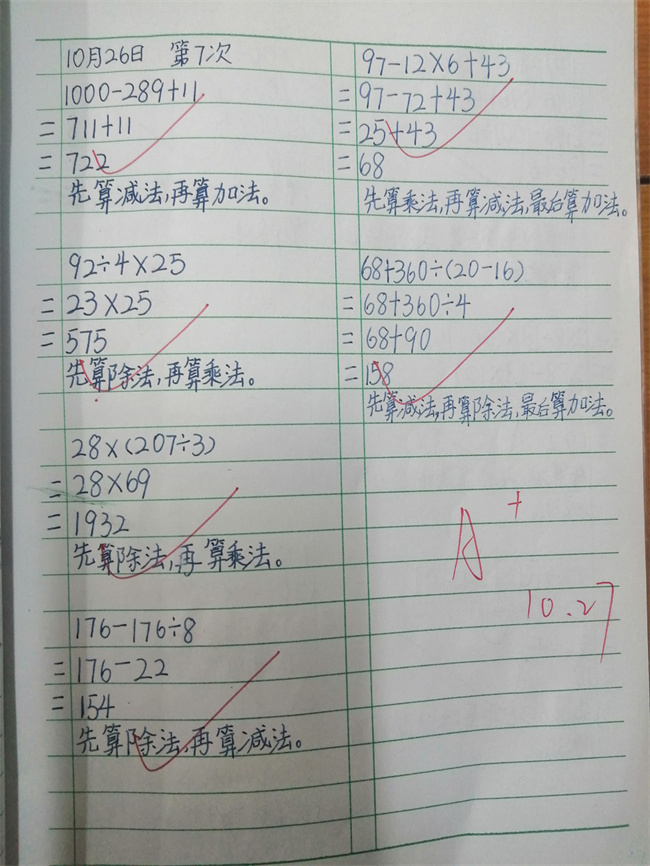 10月26日 第7次
1000-289+11
=711+11
=722
先算减法,再算加法。
92÷4×25
=23×25
=575
先算除法,再算乘法。
28×(207÷3)
=28×69
=1932
先算除法,再算乘法。
176-176÷8
=176-22
=154
先算除法,再算减法。
97-12×6+43
=97-72+43
=25+43
=68
先算乘法,再算减法,最后算加法。
68+360÷(20-16)
=68+360÷4
=68+90
=158
先算减法,再算除法,最后算加法。
A+
10.27